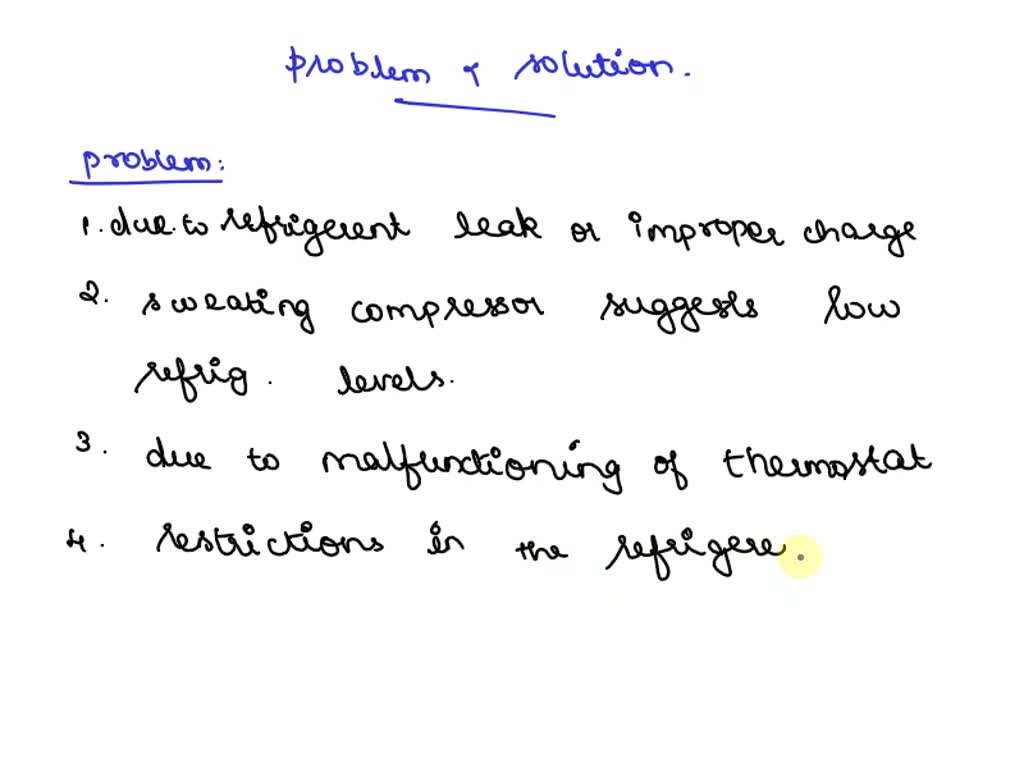 problem & solution.
problem:
1. due to refrigerent leak or improper charge
2. sweating compressor suggests low
refrig. levels.
3. due to malfunctioning of thermostat
4. restrictions in the refrigere